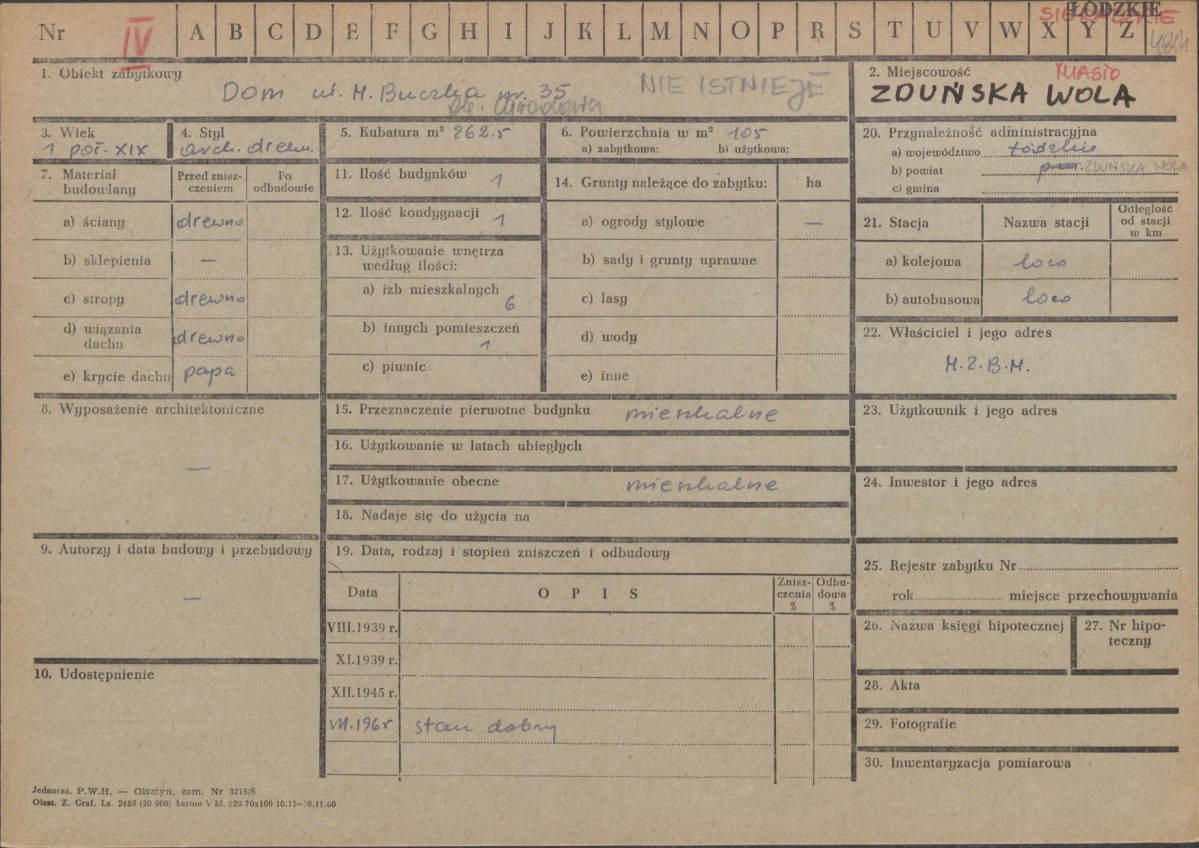 Nr IV A B C D E F G H I J K L M N O P R S T U V W X Y Z
ŁÓDZKIE
SIERADZKIE
1. Obiekt zabytkowy
Dom ul. M. Buczka nr. 35
ob. Ogrodowa
NIE ISTNIEJE
2. Miejscowość
MIASTO
ZDUŃSKA WOLA
3. Wiek
1 poł. XIX
4. Styl
arch. drewn.
5. Kubatura m³ 262.5
6. Powierzchnia w m² 105
a) zabytkowa: b) użytkowa:
20. Przynależność administracyjna
a) województwo Łódzkie
b) powiat ZDUŃSKA WOLA
c) gmina
7. Materiał budowlany
Przed zniszczeniem
Po odbudowie
a) ściany drewno
b) sklepienia —
c) stropy drewno
d) wiązania dachu drewno
e) krycie dachu papa
11. Ilość budynków 1
12. Ilość kondygnacji 1
13. Użytkowanie wnętrza
według ilości:
a) izb mieszkalnych
6
b) innych pomieszczeń
1
c) piwnic
14. Grunty należące do zabytku: ha
a) ogrody stylowe —
b) sady i grunty uprawne
c) lasy
d) wody
e) inne
21. Stacja Nazwa stacji Odległość od stacji w km
a) kolejowa loco
b) autobusowa loco
22. Właściciel i jego adres
M.Z.B.M.
8. Wyposażenie architektoniczne
—
15. Przeznaczenie pierwotne budynku mieszkalne
16. Użytkowanie w latach ubiegłych
17. Użytkowanie obecne mieszkalne
18. Nadaje się do użycia na
23. Użytkownik i jego adres
24. Inwestor i jego adres
9. Autorzy i data budowy i przebudowy
—
19. Data, rodzaj i stopień zniszczeń i odbudowy
Data OPIS Zniszczenia % Odbudowa %
VIII.1939 r.
XI.1939 r.
XII.1945 r.
VII.1965 stan dobry
25. Rejestr zabytku Nr
rok miejsce przechowywania
26. Nazwa księgi hipotecznej
27. Nr hipoteczny
28. Akta
29. Fotografie
30. Inwentaryzacja pomiarowa
10. Udostępnienie
Jednoraz. P.W.H. — Olsztyn, zam. Nr 3215/S
Olszt. Z. Graf. Lz. 2488 (30 000) karton V kl. 220 70x100 10.11—30.11.60